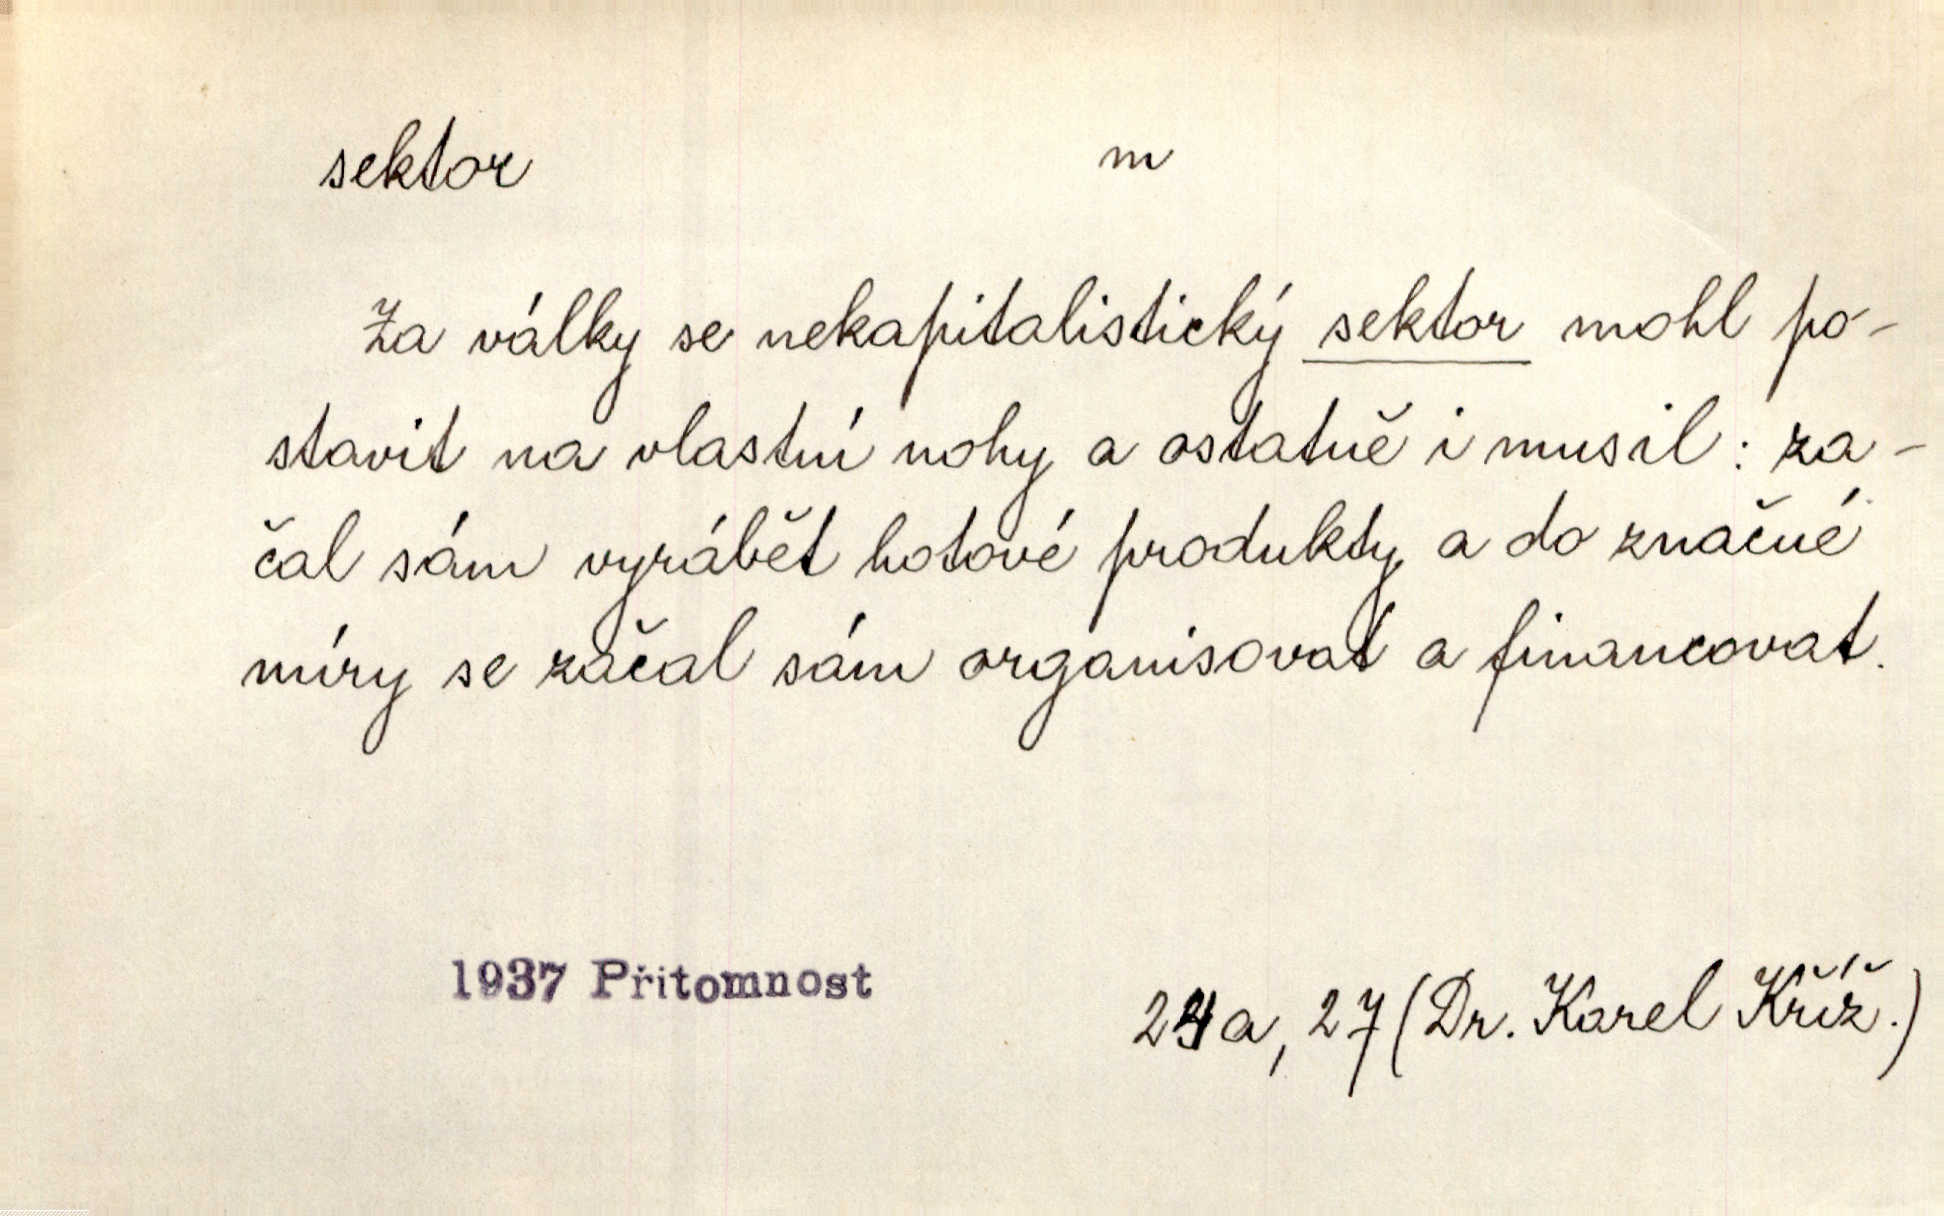 sektor m
Za války se nekapitalistický sektor mohl po-
stavit na vlastní nohy a ostatně i musil : za-
čal sám vyrábět hotové produkty a do značné
míry se začal sám organisovat a financovat.
1937 Přítomnost
a, 27 (Dr. Karel Kříž.)